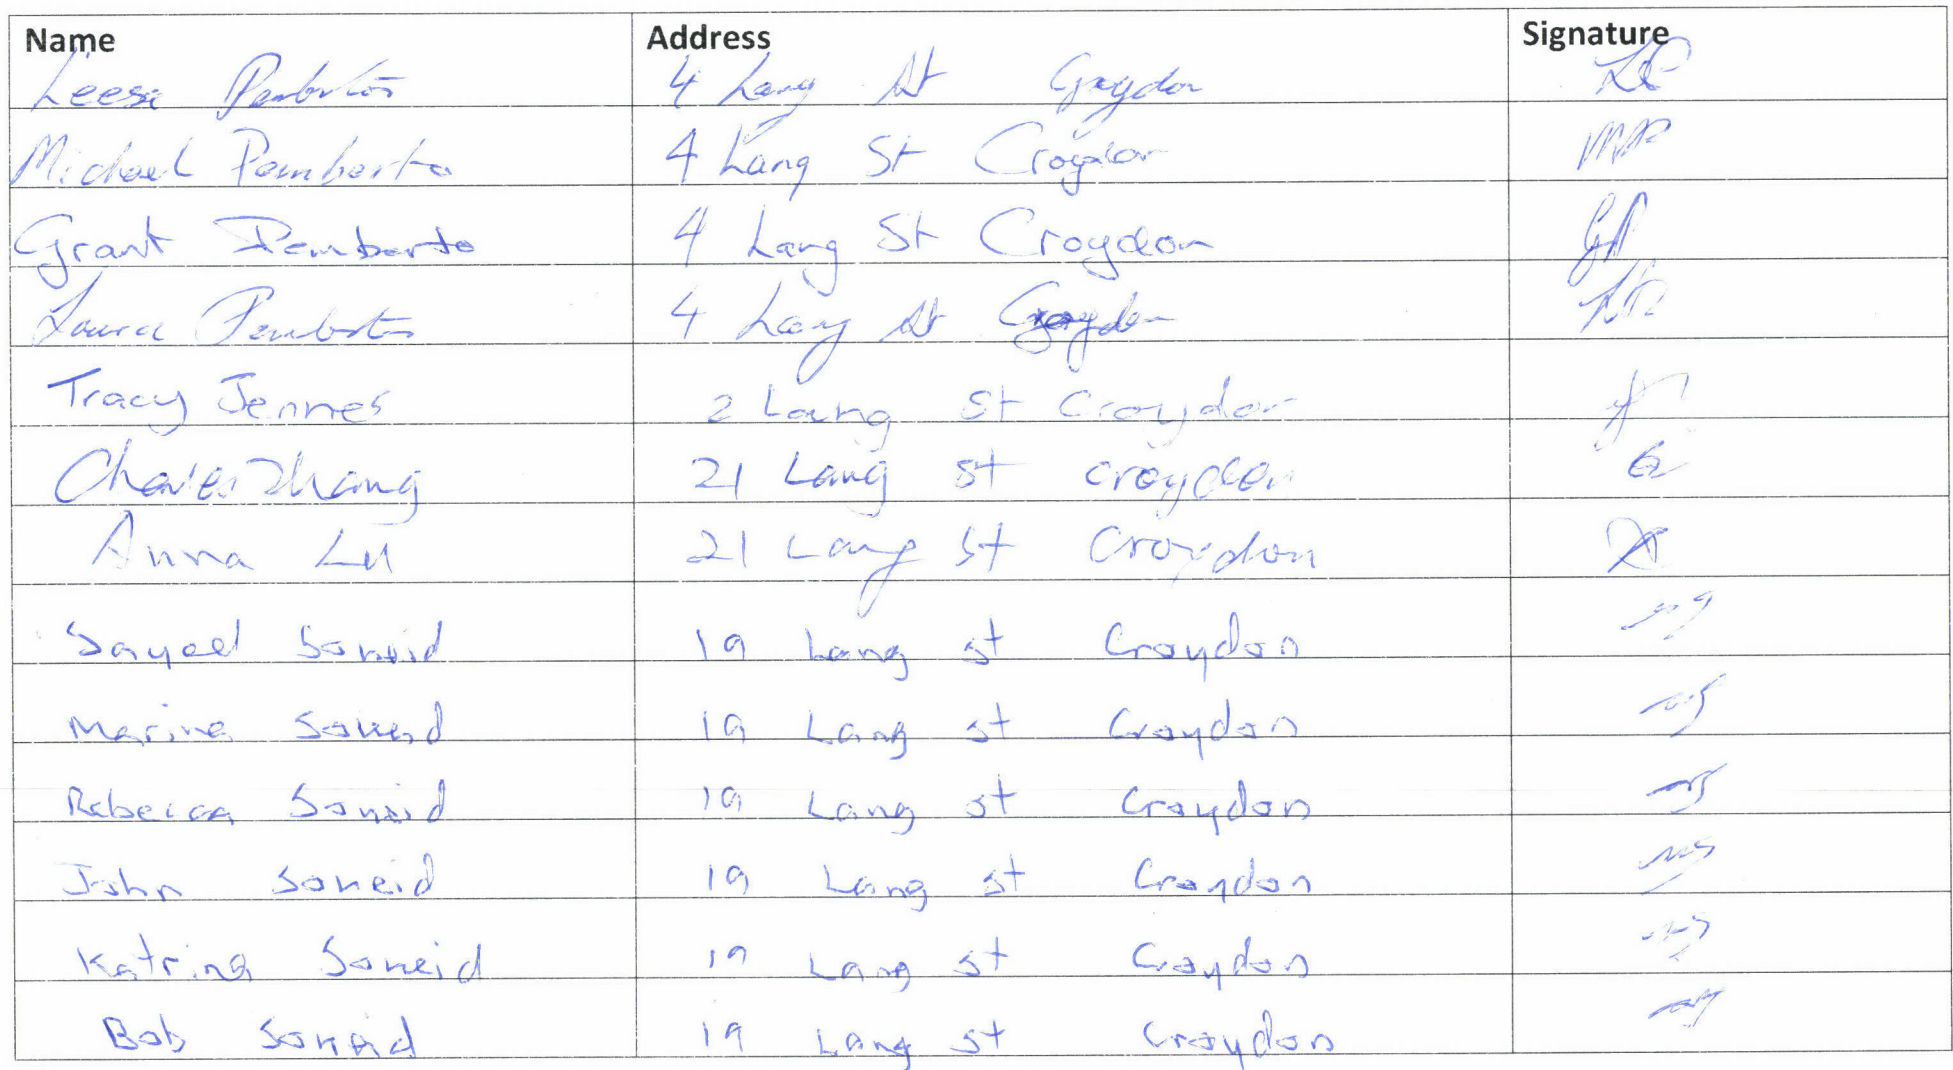 Name Address Signature
Leesa Pemberton 4 Lang St Croydon
Michael Pemberto 4 Lang St Croydon
Grant Pemberto 4 Lang St Croydon
Laura Pemberton 4 Lang St Croydon
Tracy Jennes 2 Lang St Croydon
Charles Zhang 21 Lang St Croydon
Anna Lu 21 Lang St Croydon
Sayed Soueid 19 Lang st Croydon
Marina Soueid 19 Lang st Croydon
Rebecca Soueid 19 Lang st Croydon
John Soueid 19 Lang st Croydon
Katrina Soueid 19 Lang st Croydon
Bob Soueid 19 Lang st Croydon